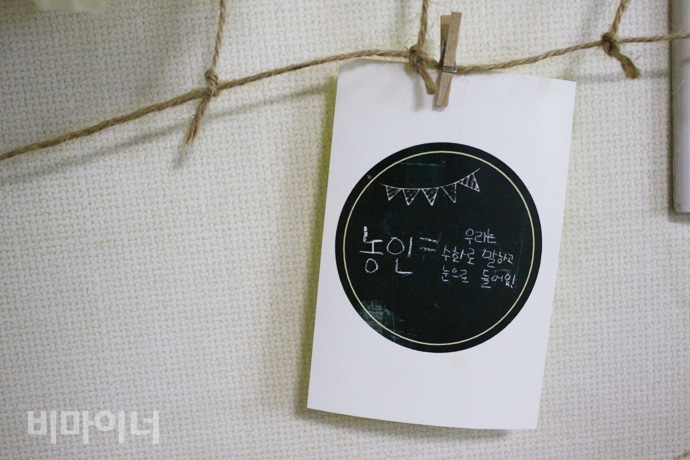 농인 =
우리는
수화로 말하고
눈으로 들어요!
비마이너